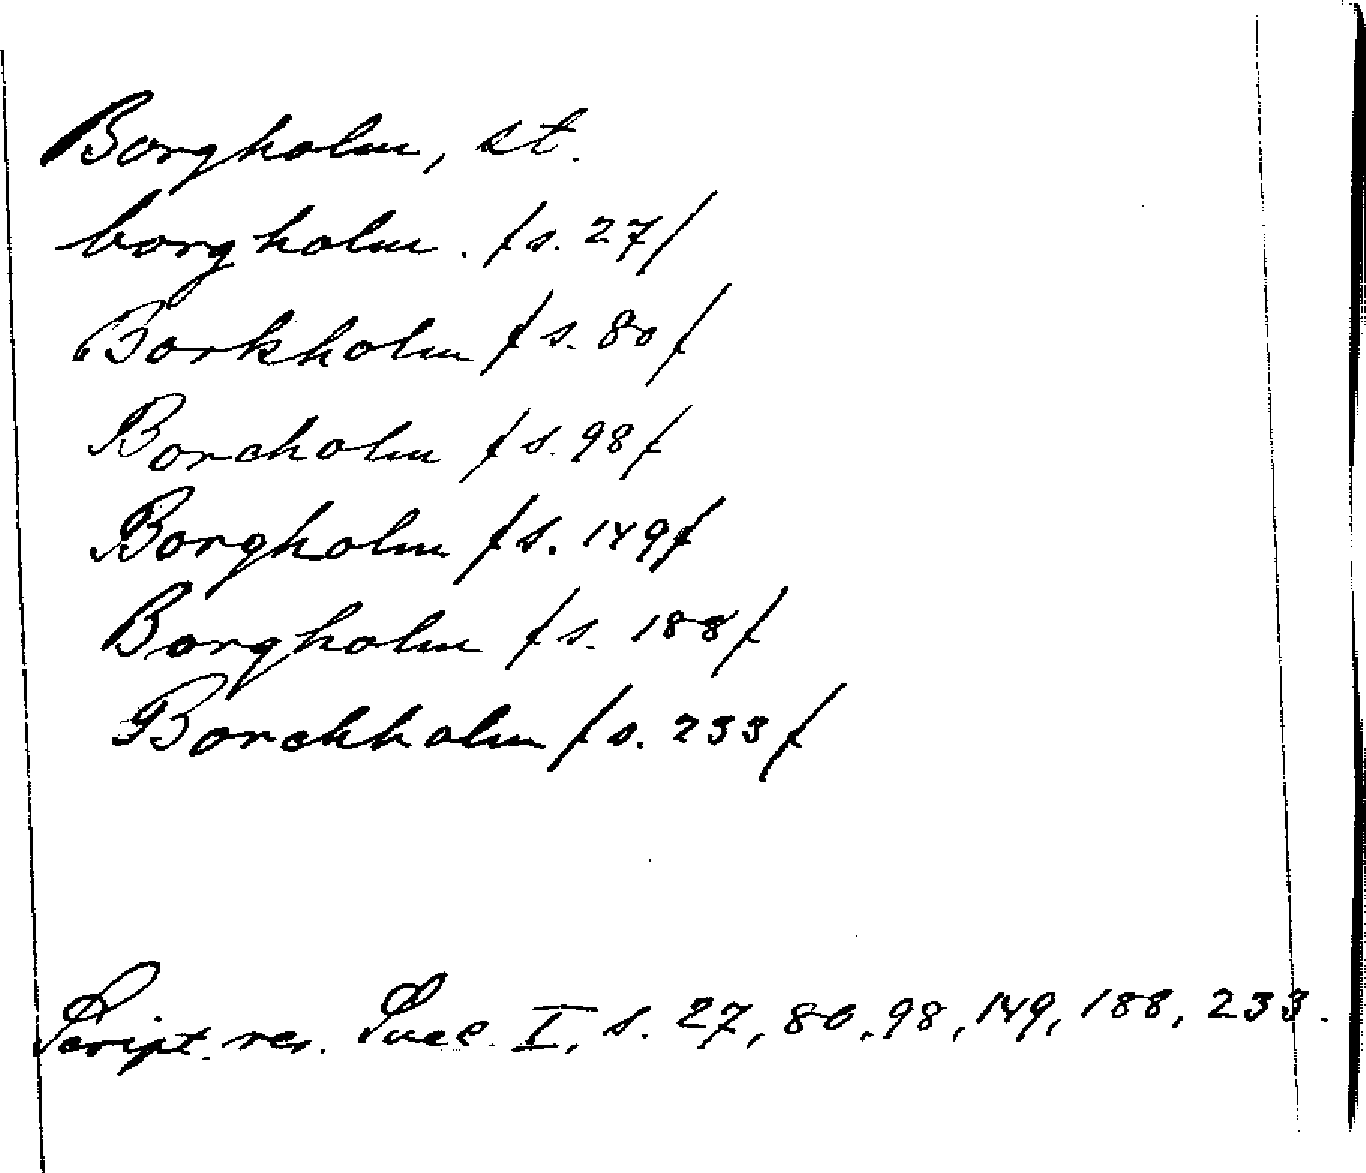 Borgholm, st.
borgholm. /s. 27/
Borkholm /s. 80/
Borcholm /s. 98/
Borgholm /s. 149/
Borgholm /s. 188/
Borchholm /s. 233/
Script. rer. Suec. I, s. 27, 80, 98, 149, 188, 233.